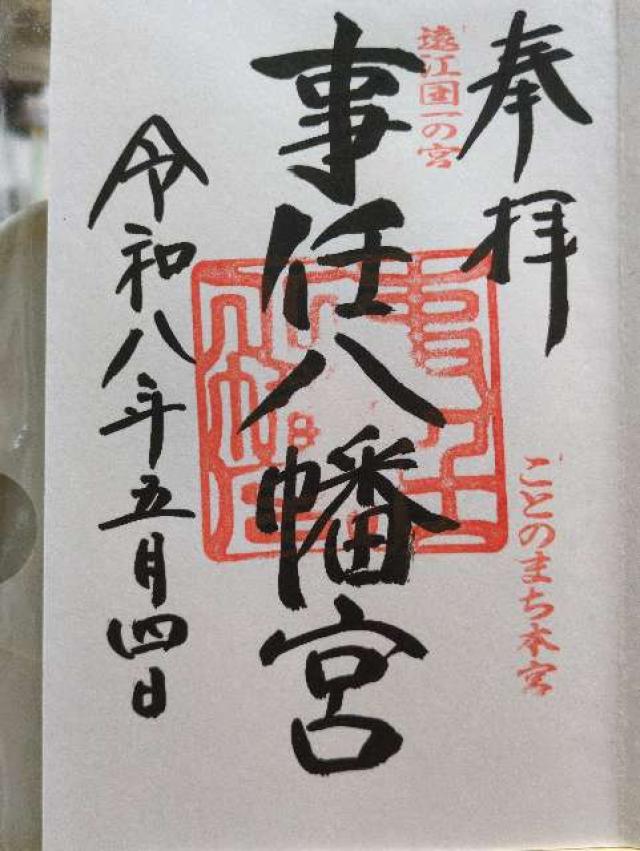 奉拝
ことのまち本宮
遠江国一の宮
事任八幡宮
令和八年五月四日